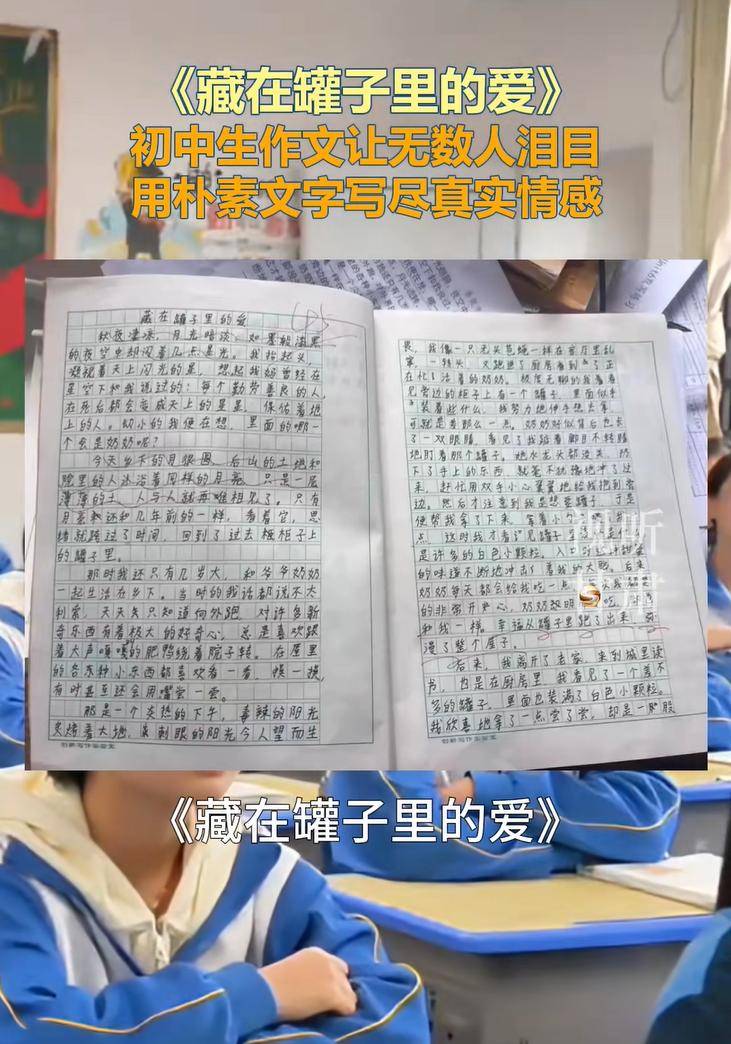 《藏在罐子里的爱》
初中生作文让无数人泪目
用朴素文字写尽真实情感
藏在罐子里的爱
秋夜凄凉，月光暗淡。如墨般漆黑
的夜空中却闪着几点星光。我抬起头，
凝视着天上闪光的星，想起我妈曾经在
星空下和我说过的：每个勤劳善良的人，
在死后都会变成天上的星星，保佑着地
上的人。幼小的我便在想，里面的哪一
个会是奶奶呢？
今天乡下的月很圆，后山的土地和
院里的人沐浴着同样的月亮，只是一层
薄薄的土，人与人就再难相见了。只有
月亮和还和几年前的一样，看着它，思
绪就跳过了时间，回到了过去柜柜子上
的罐子里。
那时我还只有几岁大，和爷爷奶奶
一起生活在乡下。当时的我话都说不大
利索，天天只知道向外跑，对许多新
奇东西有着极大的好奇心，总是喜欢跟
着大声嘎嘎的肥鸭绕着院子转。在屋里
的各东种小东西都喜欢看一看，摸一摸，
有时甚至还会用嘴尝一尝。
那是一个炎热的下午，毒辣的阳光
炙烤着大地，刺眼的阳光令人望而生
创新写作实验室
畏，我像一只无头苍蝇一样在客厅里乱
窜，一转头，又跑进了厨房看到了正
在忙活着的奶奶。极度无聊的我看着
见旁边的柜子上有一个罐子，里面似乎
装着些什么，我努力地伸手想去拿，
可就是差那么一点。奶奶好似背后也长
了一双眼睛，看见了我踮着脚目不转睛
地盯着那个罐子。她水龙头都没关，扔
下了手上的东西，就毫不犹豫地冲了过
来，赶忙用双手小心翼翼地给我抱到旁
边。然后才注意到我是想要罐子，于是
便帮我拿了下来，拿着小
点，这时我才看见罐子里
是许多的白色小颗粒，入口
的味道不断地冲击着我的大脑。后来
奶奶每天都会给我吃一点
的非常开心，奶奶
和我一样。幸福从罐子里纪了出来，弥
漫了整个屋子。
后来，我离开了老家，来到城里读
书，也是在厨房里，我看见了一个差不
多的罐子，里面也装满了白色小颗粒。
我欣喜地拿了一点尝了尝，却是一股股
创新写作实验室
视听
《藏在罐子里的爱》